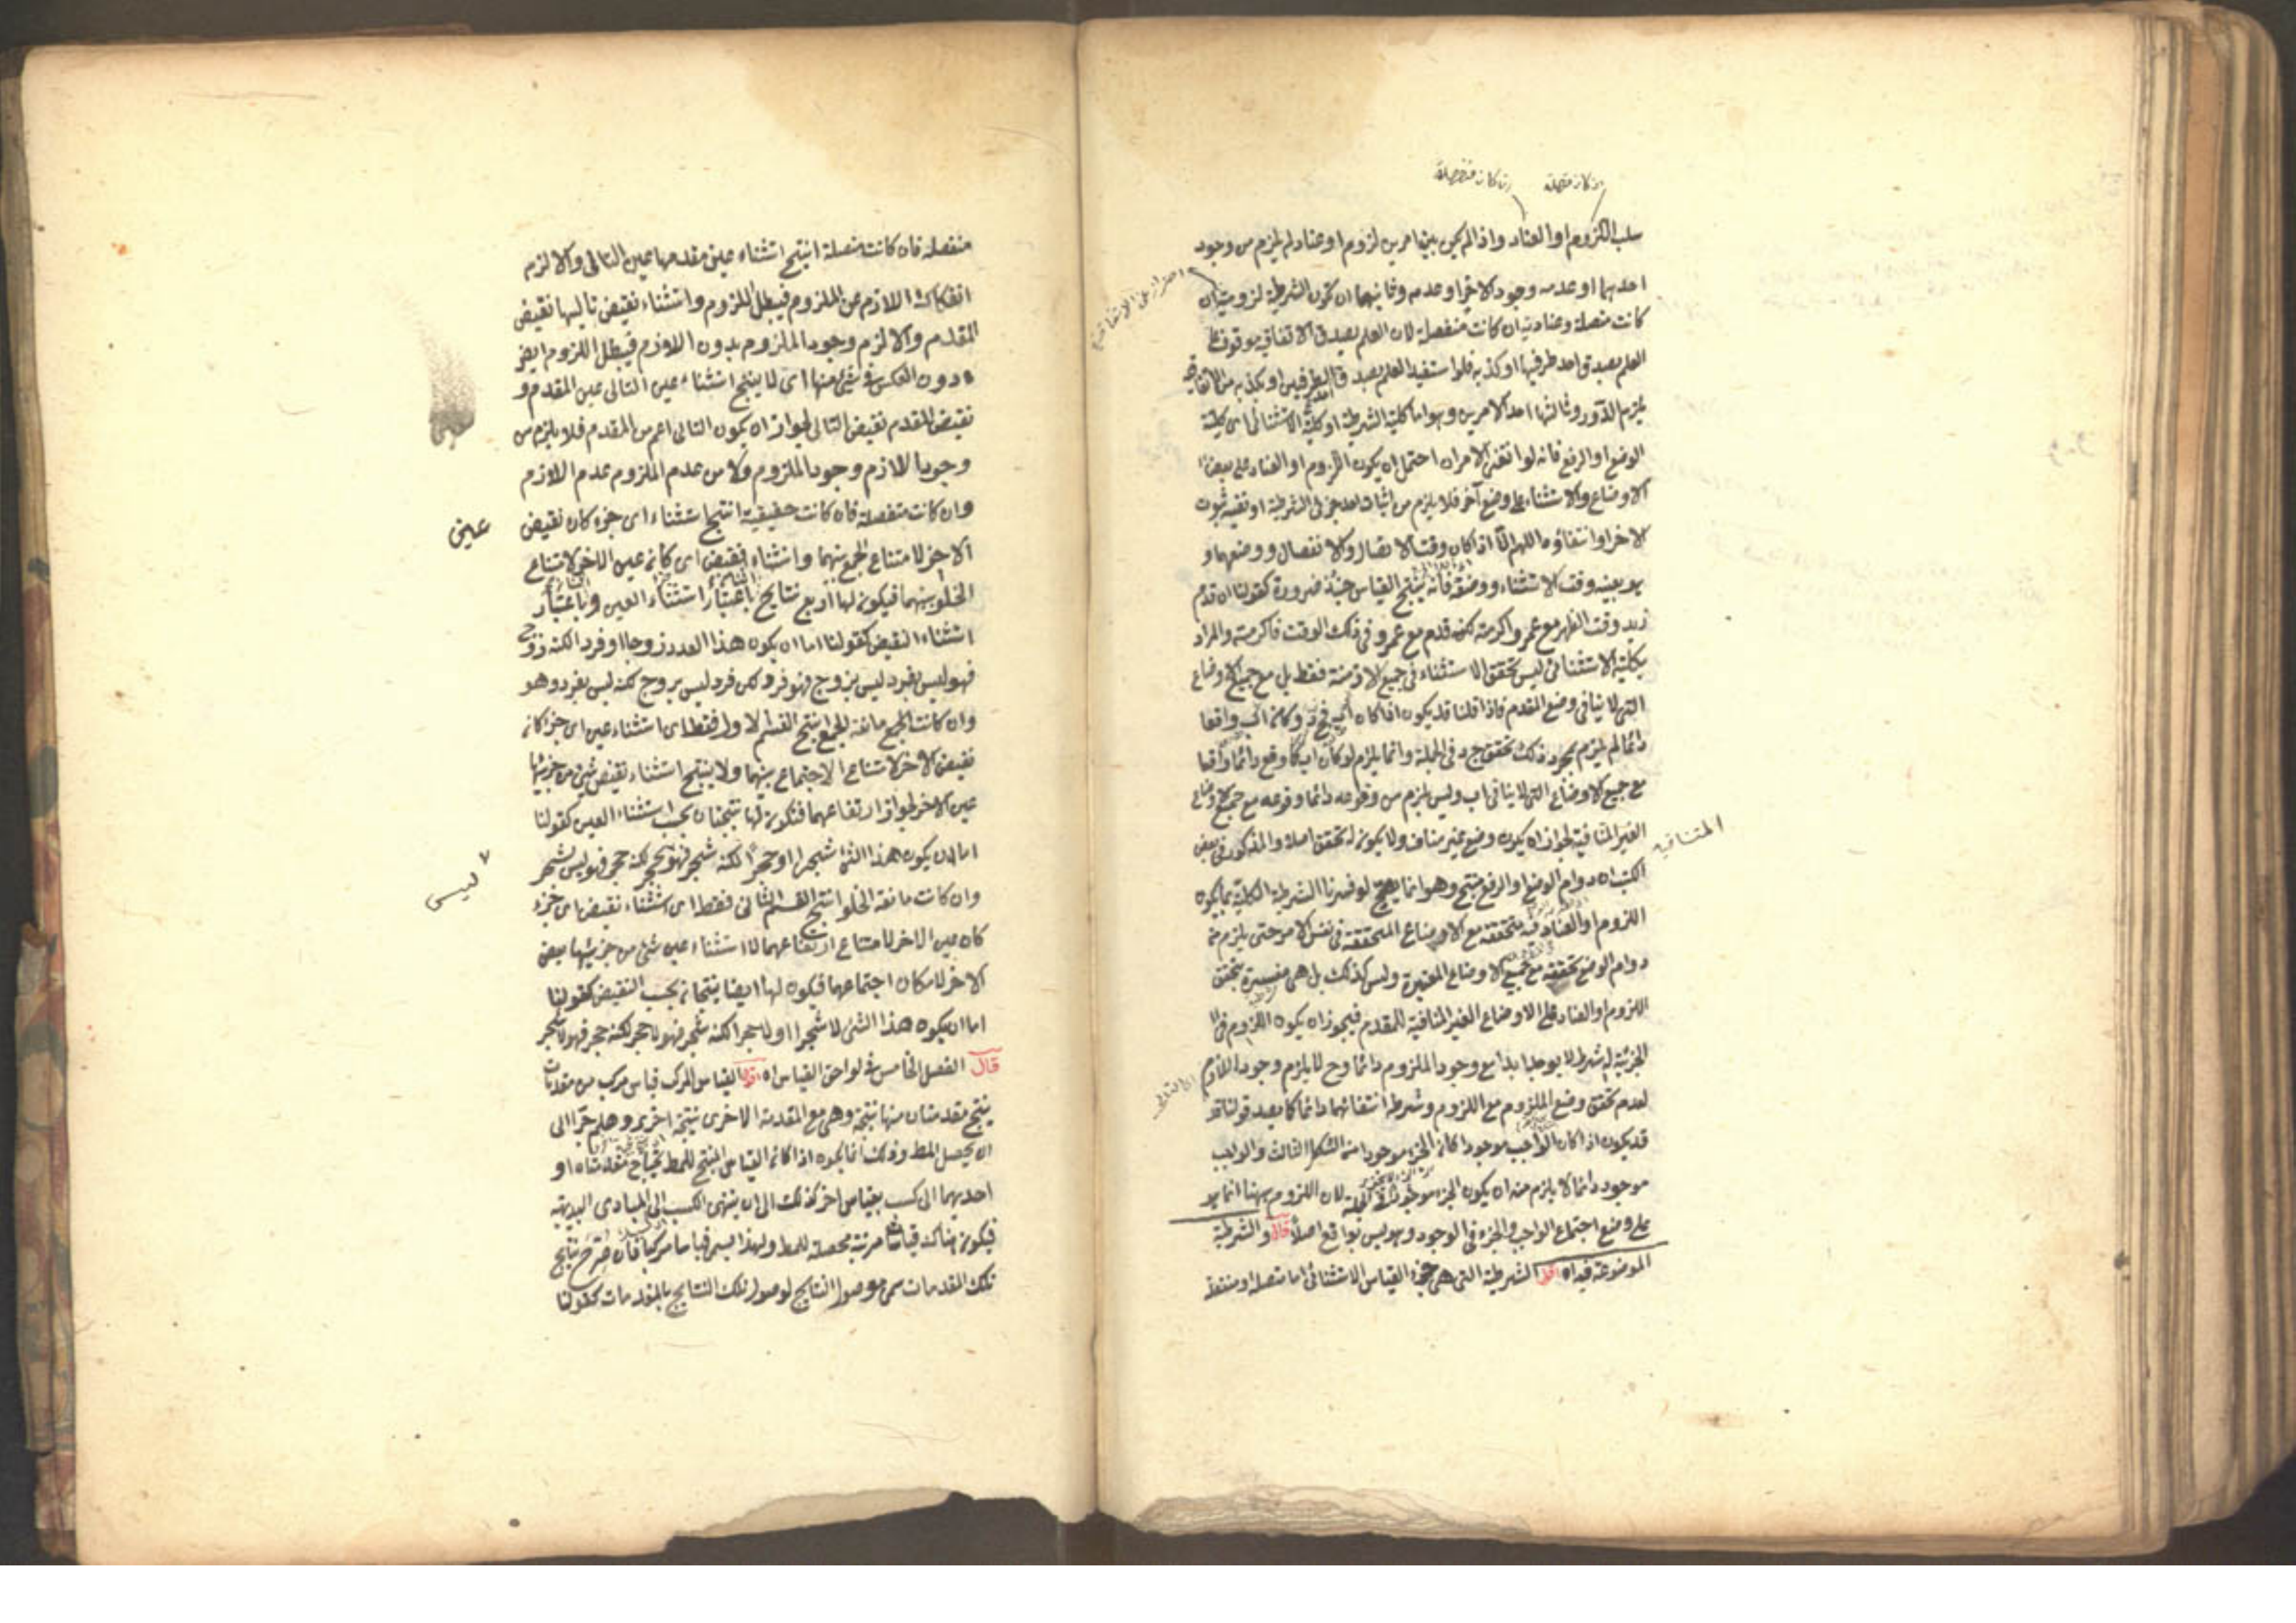 ان كانت متصلة
ان كانت منفصلة
سلب اللزوم او العناد واذا لم يكن بين امرين لزوم او عناد لم يلزم من وجود
احدهما او عدمه وجود الاخر او عدمه وثانيهما ان تكون الشرطية لزومية ان
احتراز عن الاتفاقية
كانت متصلة وعنادية ان كانت منفصلة لان العلم بصدق الاتفاقية موقوف على
العلم بصدق احد طرفيها او كذبه فلو استفيد العلم بصدق احد الطرفين او بكذبه من الاتفاقية
يلزم الدور وثالثها احد الامرين وهو اما كلية الشرطية او كلية الاستثنائى اى كلية
الوضع او الرفع فانه لو انتفى الامران احتمل ان يكون اللزوم او العناد على بعض
الاوضاع والاستثناء على وضع آخر فلا يلزم من اثبات احد جزئى الشرطية او نفيه ثبوت
الاخر او انتفاؤه اللهم الا اذا كان وقت الاتصال والانفصال ووضعهما و
هو بعينه وقت الاستثناء ووضعه فانه ينتج القياس حينئذ ضرورة كقولنا ان قدم
زيد وقت الظهر مع عمرو اكرمته لكنه قدم مع عمرو فى ذلك الوقت فاكرمته والمراد
بكلية الاستثنائى ليس تحقق الاستثناء فى جميع الازمنة فقط بل مع جميع الاوضاع
التى لا ينافى وضع المقدم فاذا قلنا قد يكون اذا كان اب فج د وكان اب واقعا
دائما لم يلزم بمجرد ذلك تحقق ج د فى الجملة وانما يلزم لو كان اب كما وقع دائما واقعا
مع جميع الاوضاع التى لا ينافى اب وليس يلزم من وقوعه دائما وقوعه مع جميع الاوضاع
الغير المنافية لجواز ان يكون وضع غير مناف ولا يكون له تحقق اصلا والمذكور فى بعض
المنافية
الكتب ان دوام الوضع او الرفع منتج وهو انما يصح لو فسرنا الشرطية الكلية بما يكون
اللزوم او العناد فيه متحققة مع الاوضاع المتحققة فى نفس الامر حتى يلزم من
دوام الوضع تحققه مع جميع الاوضاع المعتبرة وليس كذلك بل هى مفسرة بتحقق
اللزوم او العناد على الاوضاع الغير المنافية للمقدم فيجوز ان يكون اللزوم فى
الجزئية له شرط لا يوجد ابدا مع وجود الملزوم دائما وح لا يلزم وجود اللازم
لعدم تحقق وضع الملزوم مع اللزوم وشرطه انتفائهما دائما كما يصدق قولنا
قد يكون اذا كان الواجب موجودا كان الجزء موجودا من الشكل الثالث والواجب
موجود دائما لا يلزم منه ان يكون الجزء موجودا فى الجملة لان اللزوم ههنا انما هو
على وضع اجتماع الواجب والجزء فى الوجود وهو ليس بواقع اصلا قال والشرطية
الموضوعة فيه اه اقول الشرطية التى هى جزء القياس الاستثنائى اما متصلة او منفصلة
منفصلة فان كانت متصلة انتج استثناء عين مقدمها عين التالى والا لزم
انفكاك اللازم عن الملزوم فيبطل اللزوم واستثناء نقيض تاليها نقيض
المقدم والا لزم وجود الملزوم بدون اللازم فيبطل اللزوم ايضا
دون العكس فى شئ منهما اى لا ينتج استثناء عين التالى عين المقدم و
نقيض المقدم نقيض التالى لجواز ان يكون التالى اعم من المقدم فلا يلزم من
وجود اللازم وجود الملزوم ولا من عدم الملزوم عدم اللازم
وان كانت منفصلة فان كانت حقيقية انتج استثناء اى جزء كان نقيض
عين
الآخر لامتناع الجمع بينهما واستثناء نقيض اى كان عين الاخر لامتناع
الخلو بينهما فيكون لها اربع نتايج باعتبار استثناء العين وباعتبار
استثناء النقيض كقولنا اما ان يكون هذا العدد زوجا او فردا لكنه زوج
فهو ليس بفرد ليس بزوج فهو فرد لكن فرد ليس بزوج لكنه ليس بفرد وهو
وان كانت الجمع مانعة الجمع انتج القسم الاول فقط اى استثناء عين اى جزء كان
نقيض الآخر لامتناع الاجتماع بينهما ولا ينتج استثناء نقيض شئ من جزئيها
عين الاخر لجواز ارتفاعهما فتكون لها نتيجتان بحسب استثناء العين كقولنا
اما ان يكون هذا الشئ شجرا او حجرا لكنه شجر فهو بحجر لكنه حجر فهو ليس بشجر
ليس
وان كانت مانعة الخلو انتج القسم الثانى فقط اى استثناء نقيض اى جزء
كان عين الاخر لامتناع ارتفاعهما لا استثناء عين شئ من جزئيها نقيض
الاخر لامكان اجتماعهما فيكون لها ايضا نتيجتان بحسب النقيض كقولنا
اما ان يكون هذا الشئ لا شجرا او لا حجرا لكنه شجر فهو لا حجر لكنه حجر فهو لا شجر
قال الفصل الخامس فى لواحق القياس اه اقول القياس المركب قياس مركب من مقدمات
ينتج مقدمتان منها نتيجة وهى مع المقدمة الاخرى نتيجة اخرى وهلم جرا الى
ان يحصل المط وذلك انما يكون اذا كان القياس المنتج للمط يحتاج مقدمتاه او
احديهما الى كسب بقياس اخر كذلك الى ان ينتهى الكسب الى المبادى البديهية
فيكون هناك قياسات مرتبة محصلة للمط ولهذا يسمى قياسا مركبا فان صرح بنتايج
تلك المقدمات سمى موصول النتايج لوصول تلك النتايج بالمقدمات كقولنا